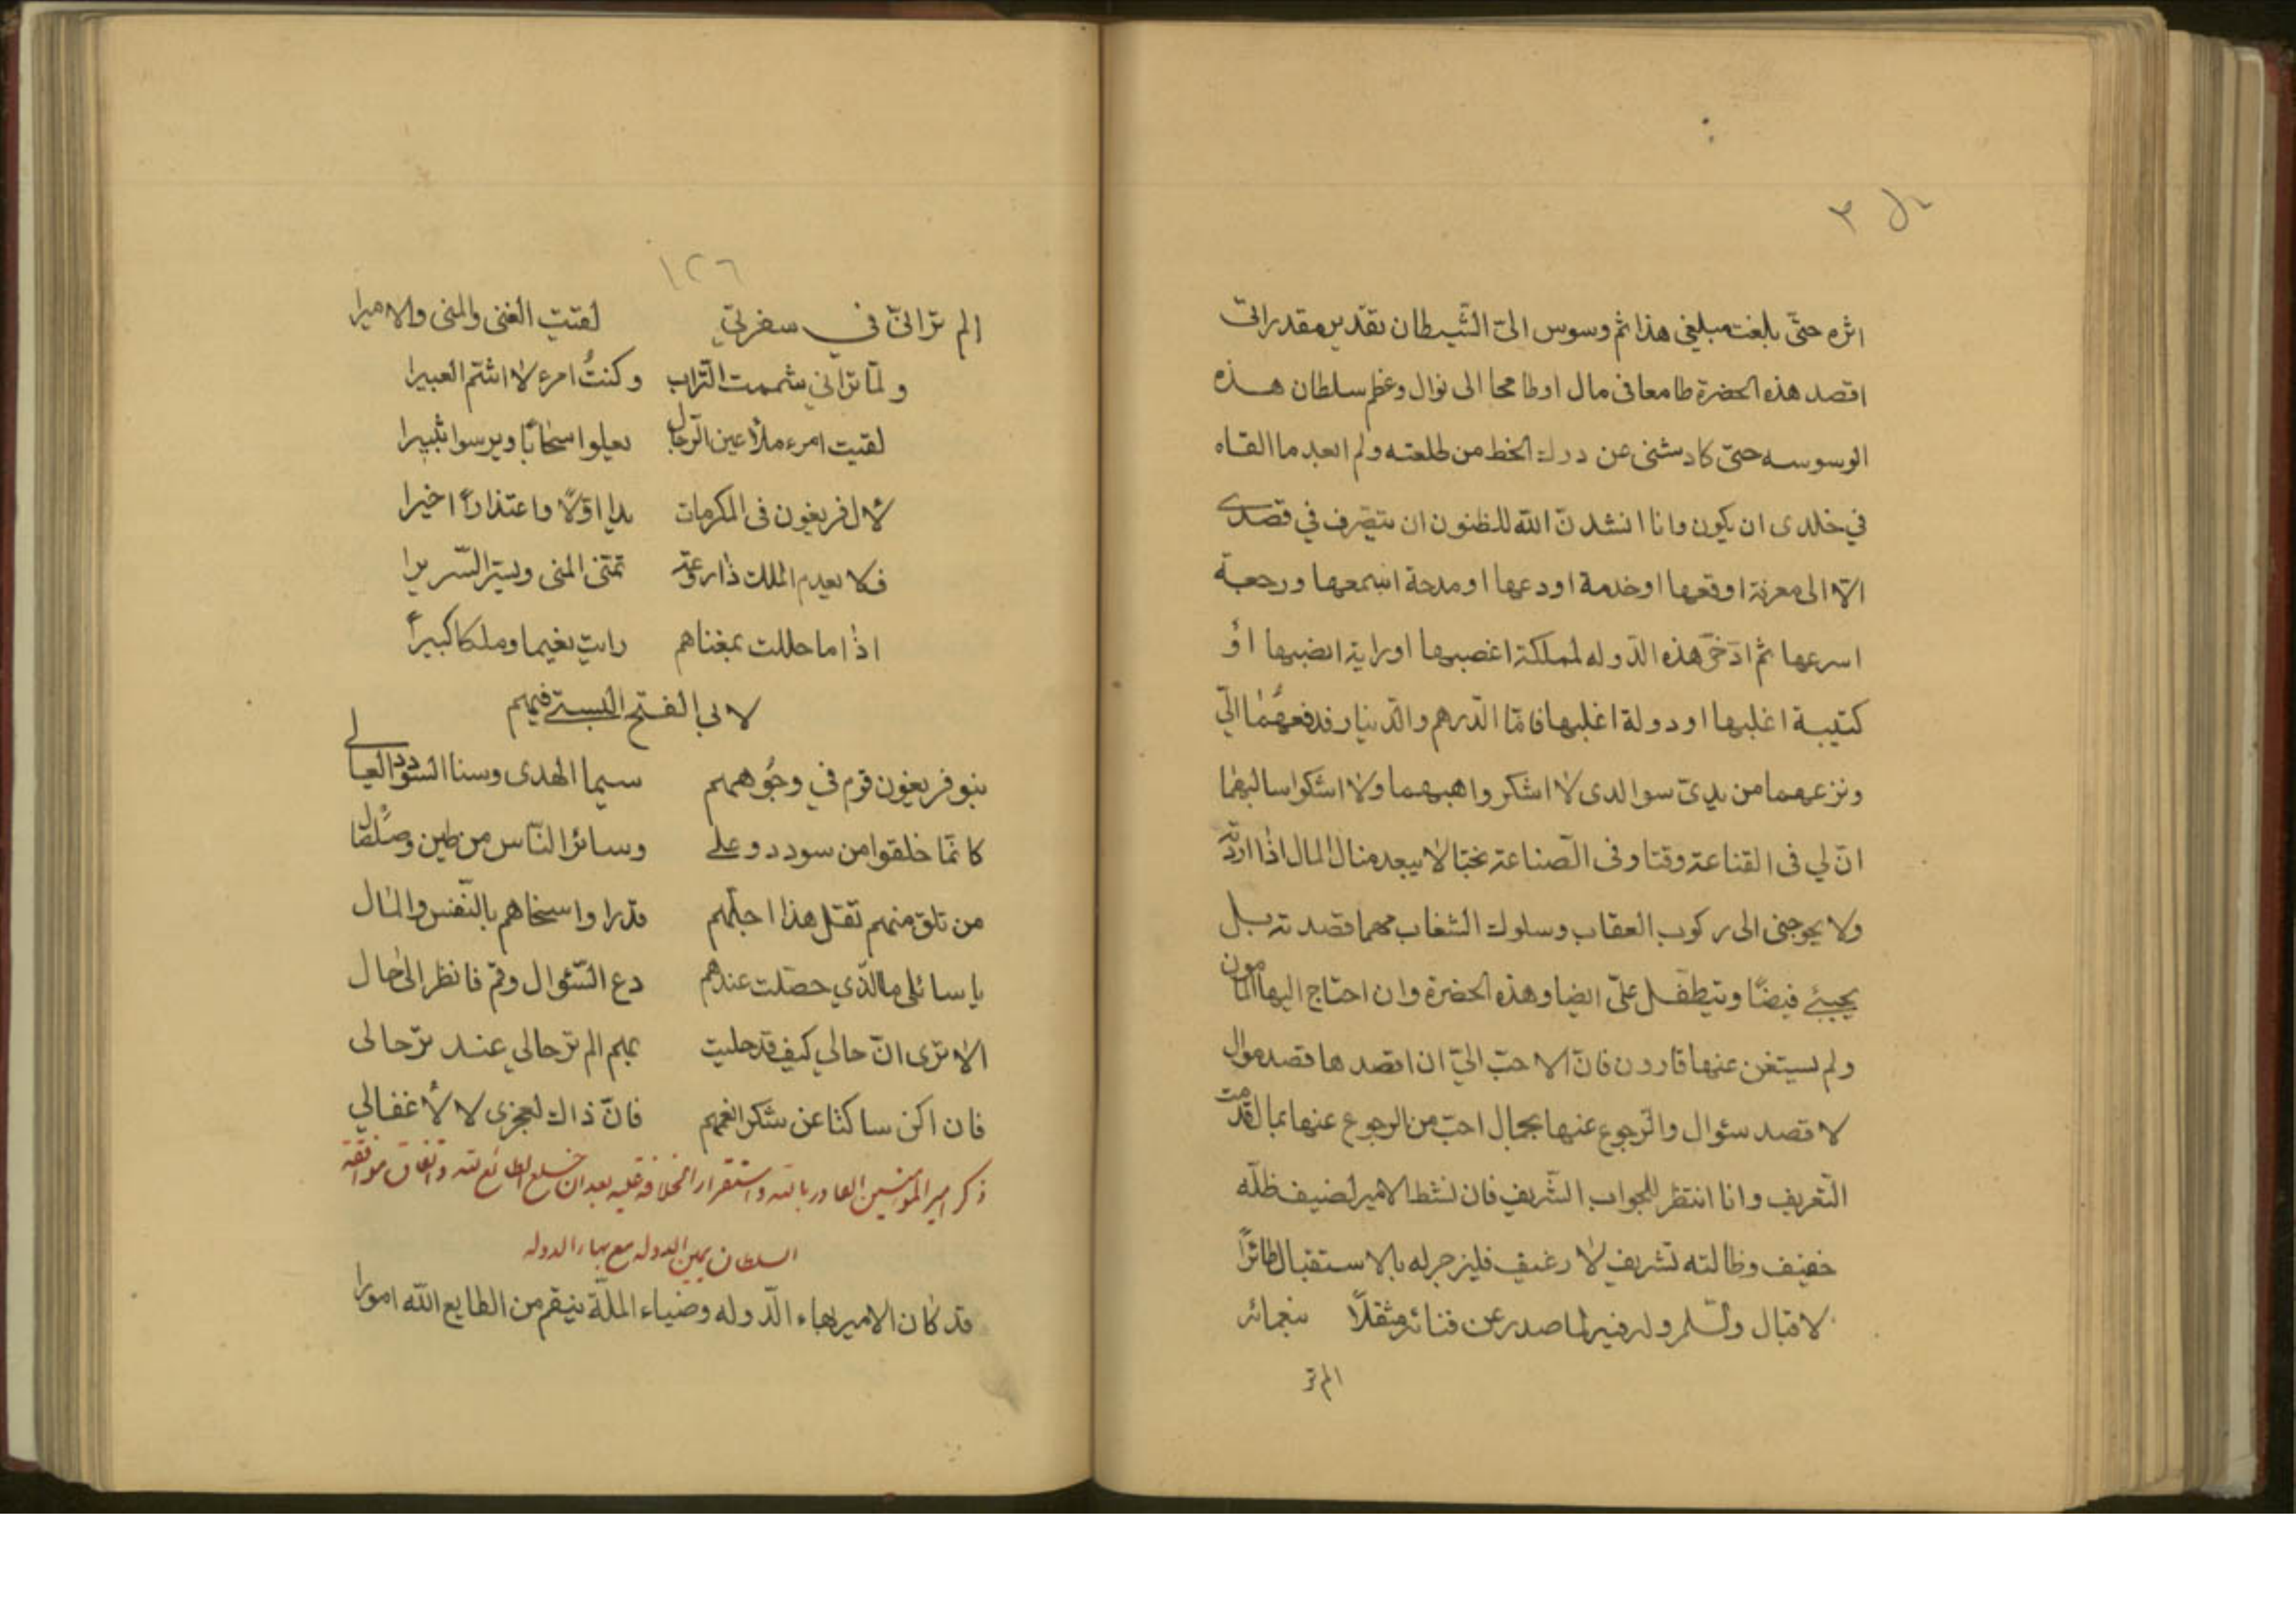 اثره حتّى بلغت مبلغى هذا ثم وسوس الىّ الشّيطان بقدير مقدر انّى
اقصد هذه الحضرة طامعا فى مال او طامحا الى نوال وعظم سلطان هذه
الوسوسه حتى كاد يثنى عن درك الخط من طلعته ولم ابعد ما القاه
في خلدى ان يكون وانا انشدت الله للظنون ان يتصّرف في قصدى
الّا الى معرفة اوقعها او خدمة اودعها او مدحة اسمعها ورجعة
اسرعها ثم ادّخر هذه الدّوله لمملكة اغصبها او راية انصبها اوْ
كتيبة اغلبها او دولة اغلبها فامّا الدّرهم والدّينار فدفعهما الىّ
ونزعهما من يدىّ سوا لدى لا اشكر واهبهما ولا اشكوا سالبهما
انّ لي فى القناعة وقتا وفى الصّناعة بختا لا يبعد منال المال اذا اردته
ولا يحوجنى الى ركوب العقاب وسلوك الشغاب مهما قصدته بل
يجيئ فيضًا ويتطفّل علىّ ايضا وهذه الحضرة وان احتاج اليها المامون
ولم يستغن عنها قارون فانّ الاحبّ الىّ ان اقصدها قصد موال
لا قصد سئوال والرّجوع عنها بجمال احبّ من الرجوع عنها بمال قدمت
التّعريف وانا انتظر للجواب الشّريف فان نشط الامير لضيف ظلّه
خفيف وظالته تشريف لا رغيف فليزجر له بالاستقبال طائرًا
لاقبال والسّلم وله فيه لما صدر عن فنائه مثقلًا بنعمائه
الم تر
١٢٦
الم تر انّى في سفرتي لقيت الغنى والمنى والاميرا
ولمّا تراني شممت التّراب وكنتُ امرء لا اشتم العبيرا
لقيت امرء ملأ عين الرّجال يعلوا سحابًا ويرسوا ثبيرا
لأل فريغون فى المكرمات يدا اوّلًا واعتذارًا اخيرا
فلا يعدم الملك ذا رعة تمنّى المنى ويسّر السّريرا
اذا ما حللت بمغناهم رايت نعيما وملكا كبيرًا
لابى الفتح البستى فيهم
بنو فريغون قوم في وجُوههم سيما الهدى وسنا السّودد العالى
كانّما خلقوا من سودد وعلى وسائر النّاس من طين وصلصال
من تلق منهم تقل هذا اجلّهم قدرا واسخاهم بالنّفس والمال
يا سائلى ما الّذي حصّلت عندهم دع السّئوال وقم فانظر الى حال
الا ترى انّ حالي كيف قد حليت بهم الم تر حالي عند ترحالى
فان اكن ساكتا عن شكر انعمهم فانّ ذاك لعجزى لا لأغفالي
ذكر امير المؤمنين القادر بالله واستقرار الخلافة عليه بعد ان خلع الطائع لله واتفاق موافقة
السلطان يمين الدوله مع بهاء الدوله
قد كان الامير بهاء الدّوله وضياء الملّة ينقم من الطايع الله امورا